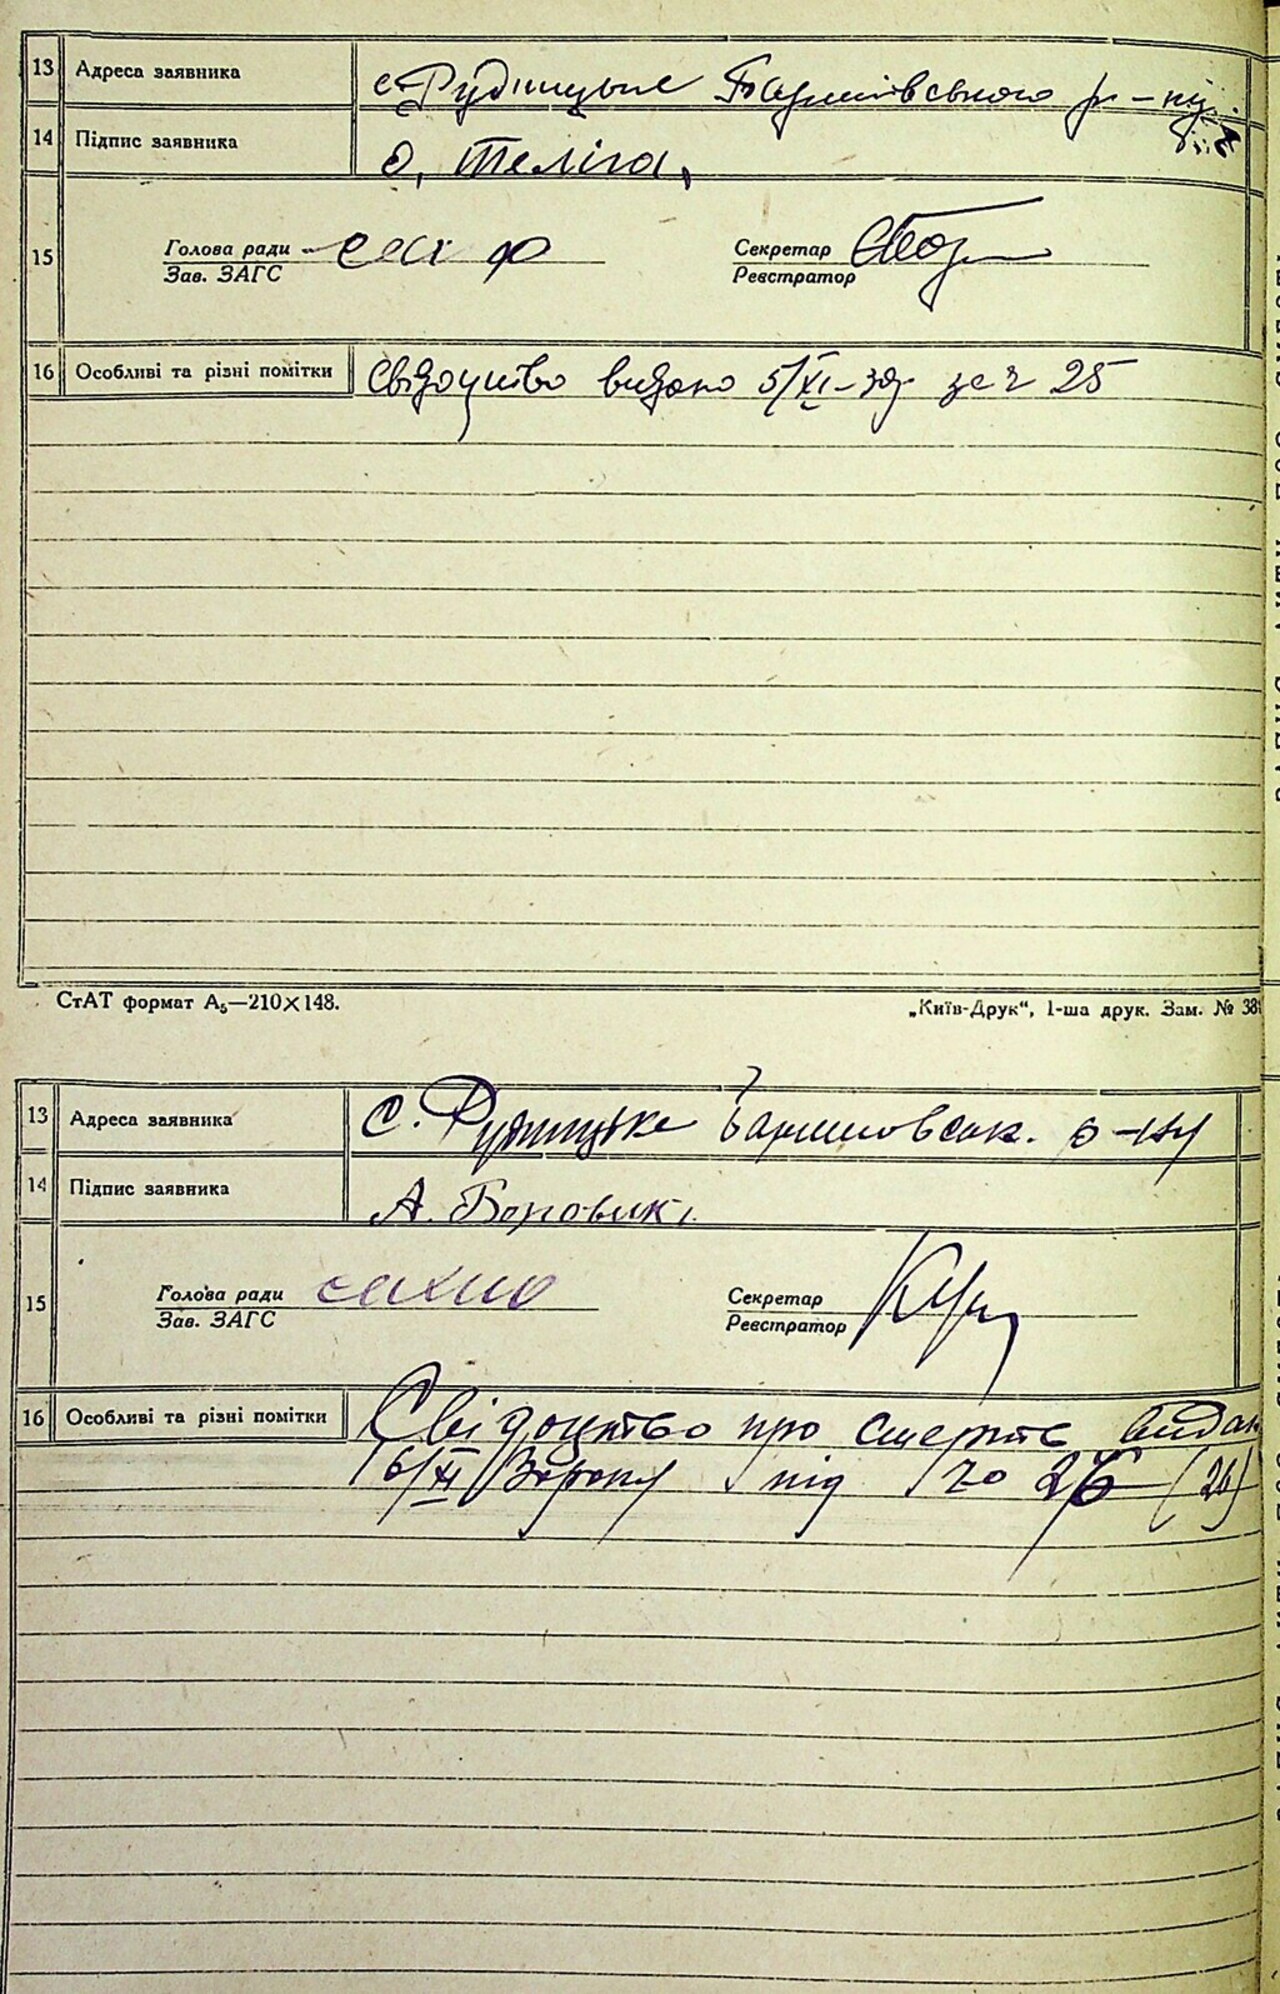 13 Адреса заявника с. Рудницьке Баришівського р-ну
14 Підпис заявника О. Теліга,
15 Голова ради Секретар
Зав. ЗАГС Реєстратор
16 Особливі та різні помітки Свідоцтво видано 5/XI-33р за ч 25
СтАТ формат А₅—210×148. „Київ-Друк“, 1-ша друк. Зам. № 38
13 Адреса заявника с. Рудницьке Баришовськ. р-ну
14 Підпис заявника А. Боровик
15 Голова ради Секретар
Зав. ЗАГС Реєстратор
16 Особливі та різні помітки Свідоцтво про смерть видан
6/XI 33 року під № 26 (26)